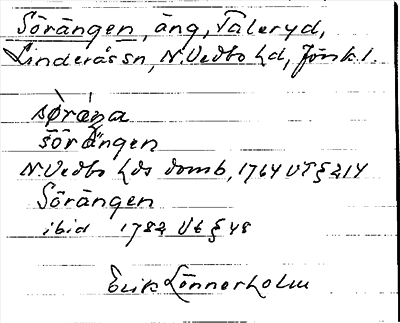 Sörängen, äng, Taleryd,
Linderås sn, N. Vedbo hd, Jönk. l.
sø̀ràŋa
sörängen
N. Vedbo hds domb, 1764 VT § 214
Sörängen
ibid 1782 Ut § 48
Erik Lönnerholm